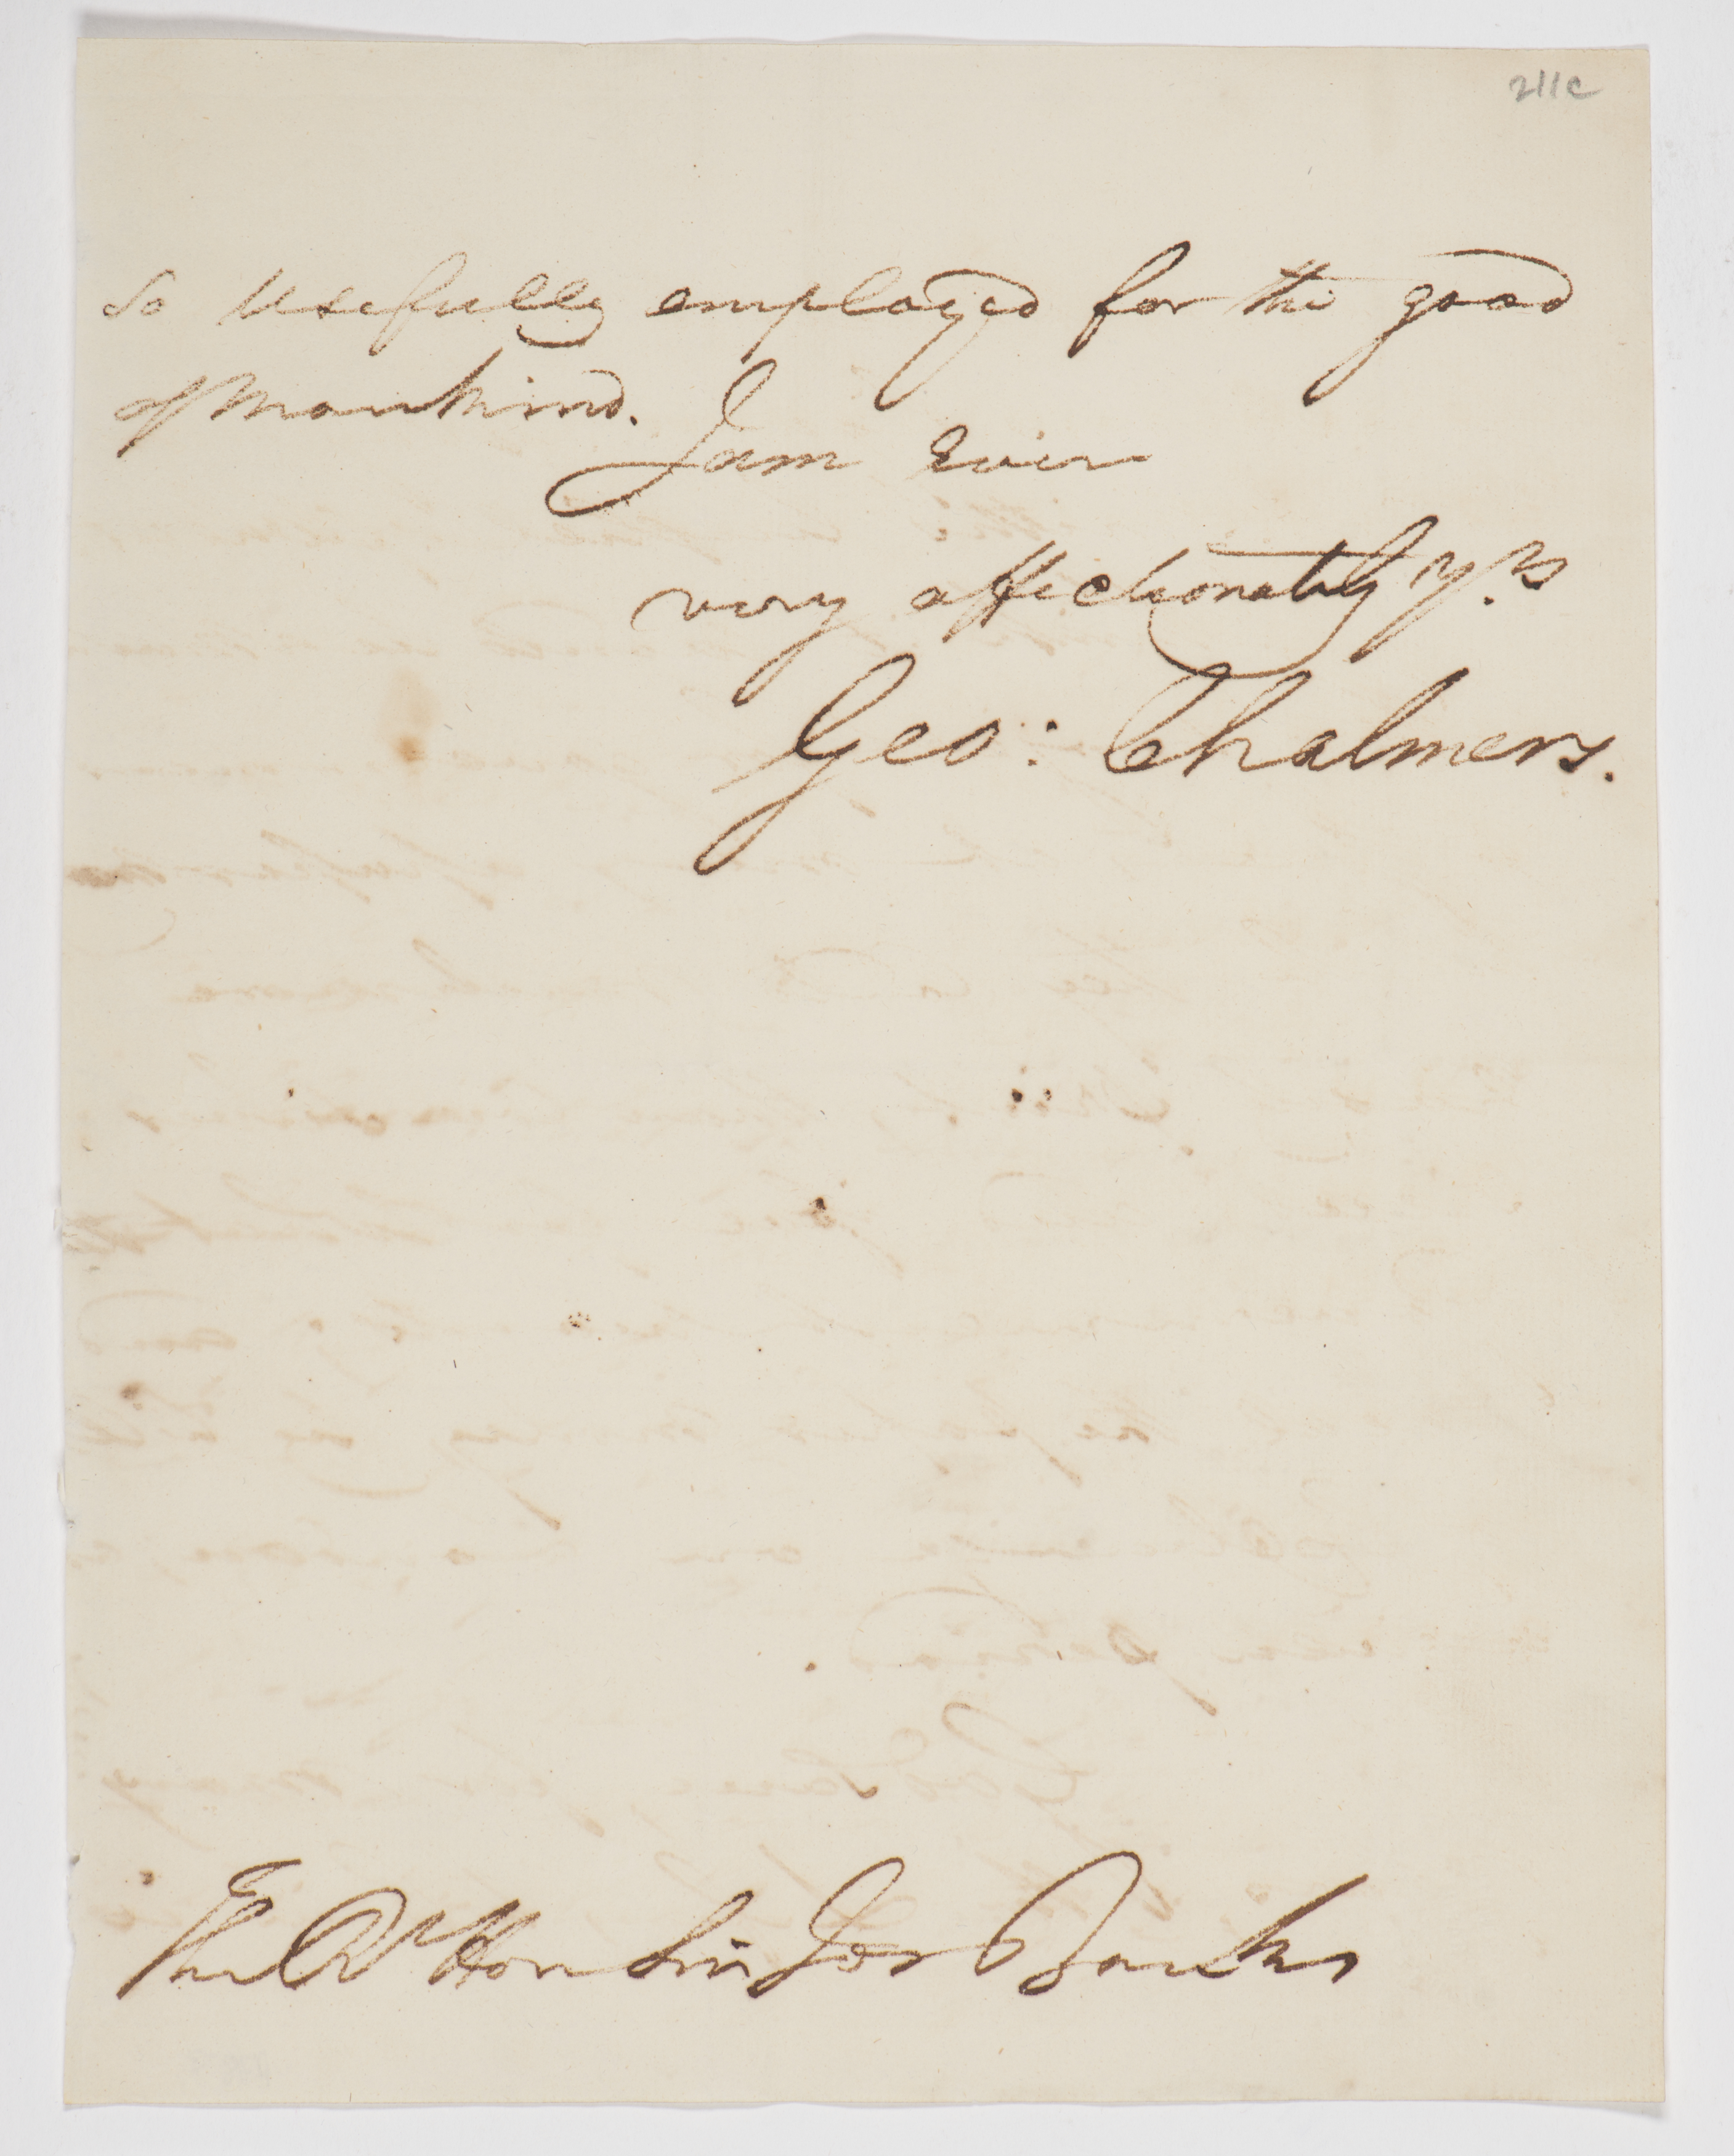 211c
So usefully employed for the good
of mankind.
I am Ever
very affectionately y.rs
Geo: Chalmers.
The Rt Hon Sir Jos Banks